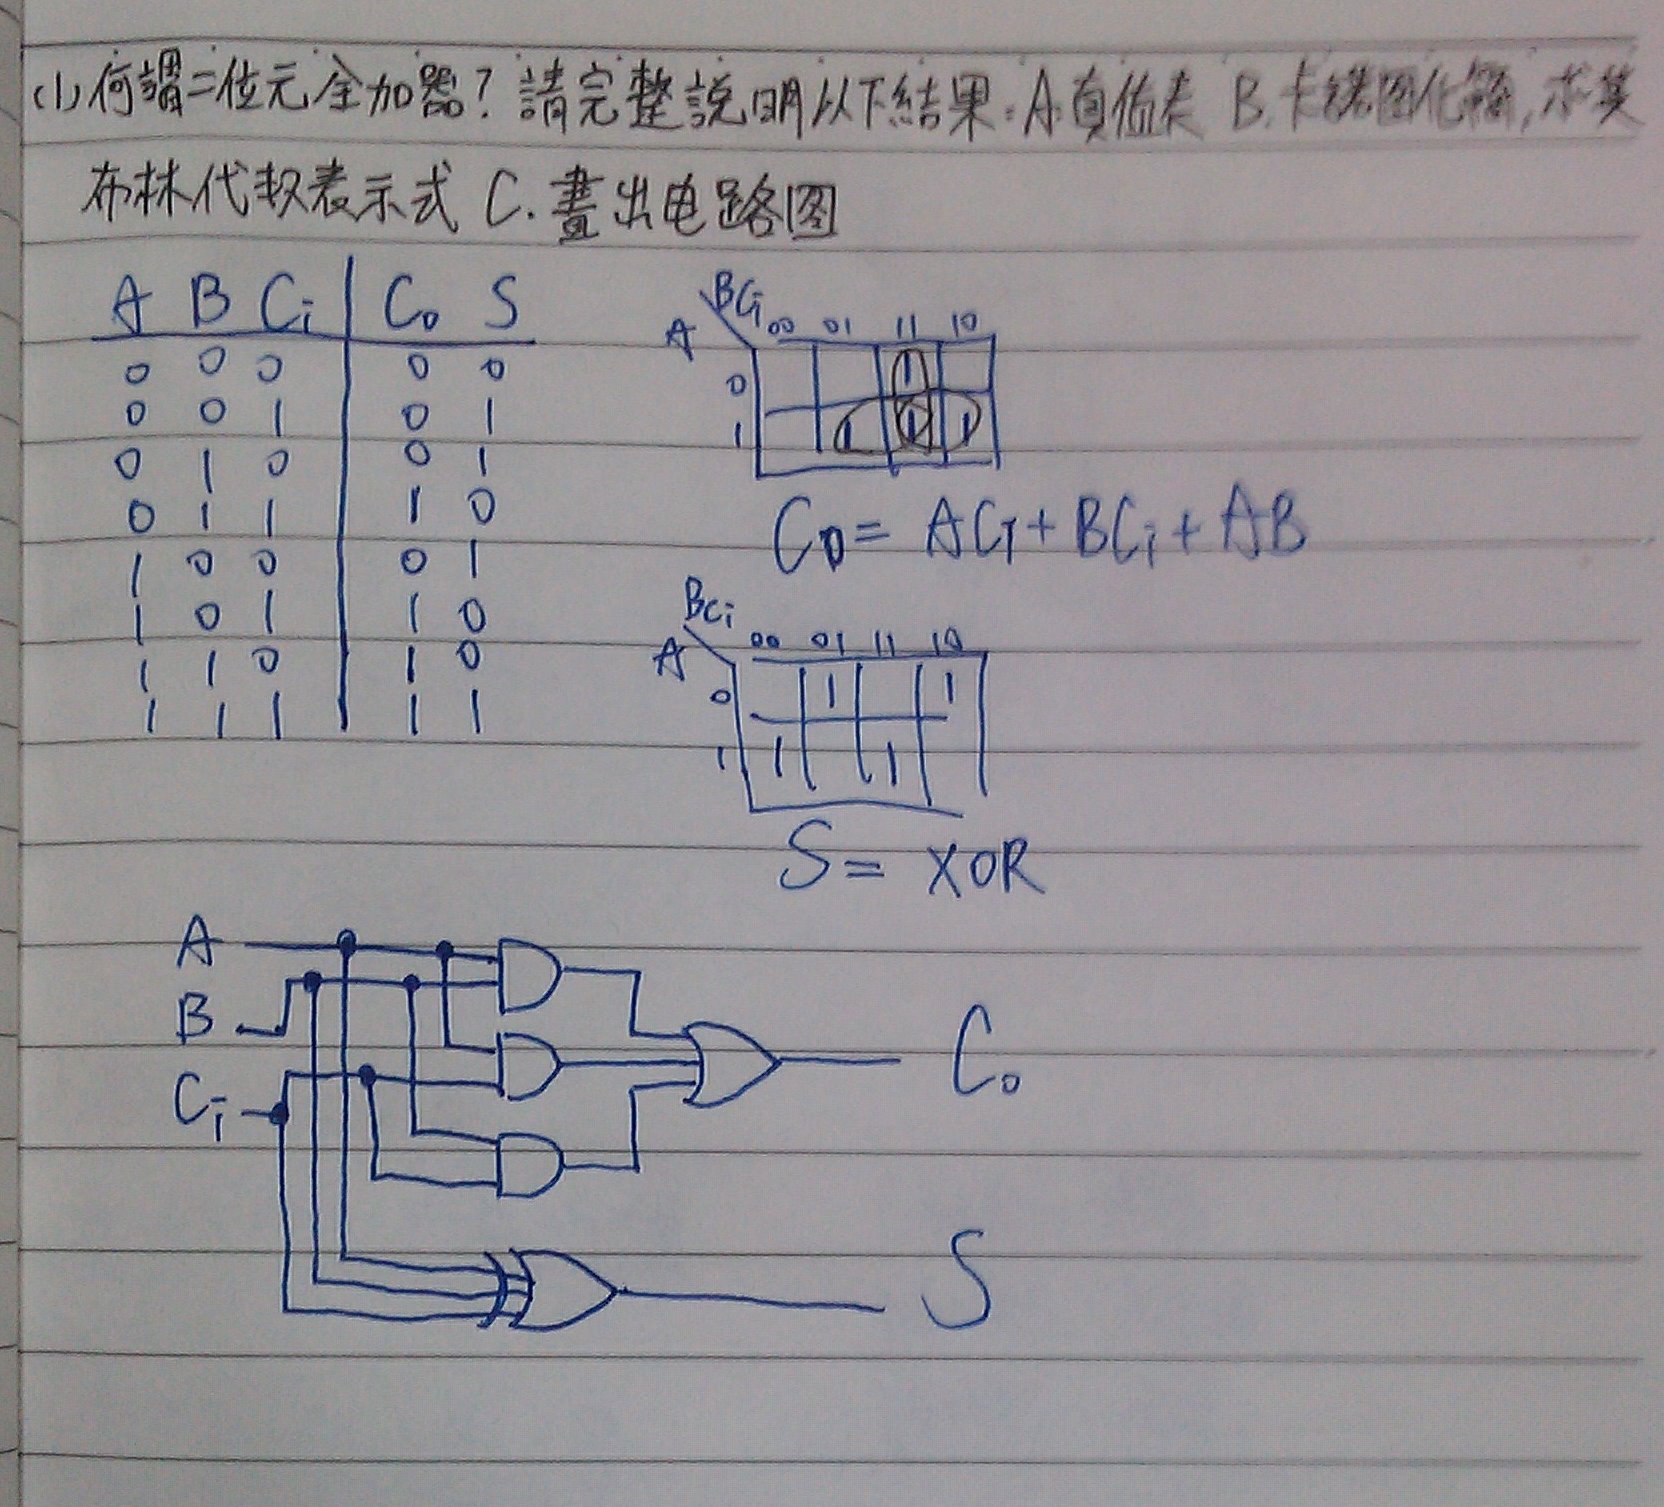 (1) 何謂二位元全加器? 請完整說明以下結果: A.真值表 B.卡諾图化簡, 求其
布林代数表示式 C. 畫出电路图
A B Ci Co S
0 0 0 0 0
0 0 1 0 1
0 1 0 0 1
0 1 1 1 0
1 0 0 0 1
1 0 1 1 0
1 1 0 1 0
1 1 1 1 1
BCi
A 00 01 11 10
0 1
1 1 1 1
Co = ACi + BCi + AB
BCi
A 00 01 11 10
0 1 1
1 1 1
S = XOR
A
B
Ci
Co
S